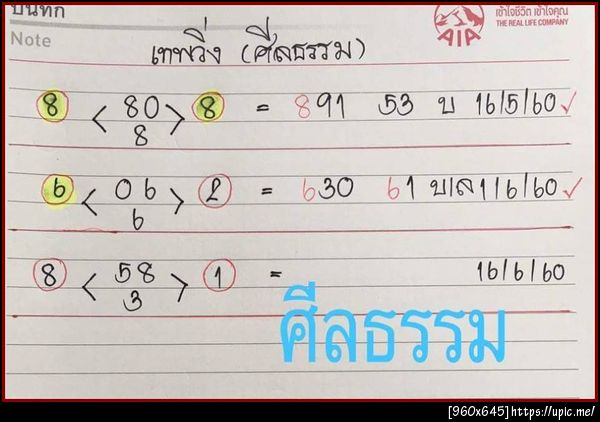 บันทึก
Note
เข้าใจชีวิต เข้าใจคุณ
THE REAL LIFE COMPANY
AIA
เทพวิ่ง (ศีลธรรม)
8 < 80 > 8 = 891 53 บ 16/5/60 ✓
8
6 < 06 > 2 = 630 61 บ/ล 1/6/60 ✓
6
8 < 58 > 1 = 16/6/60
3
ศีลธรรม
[960x645] https://upic.me/